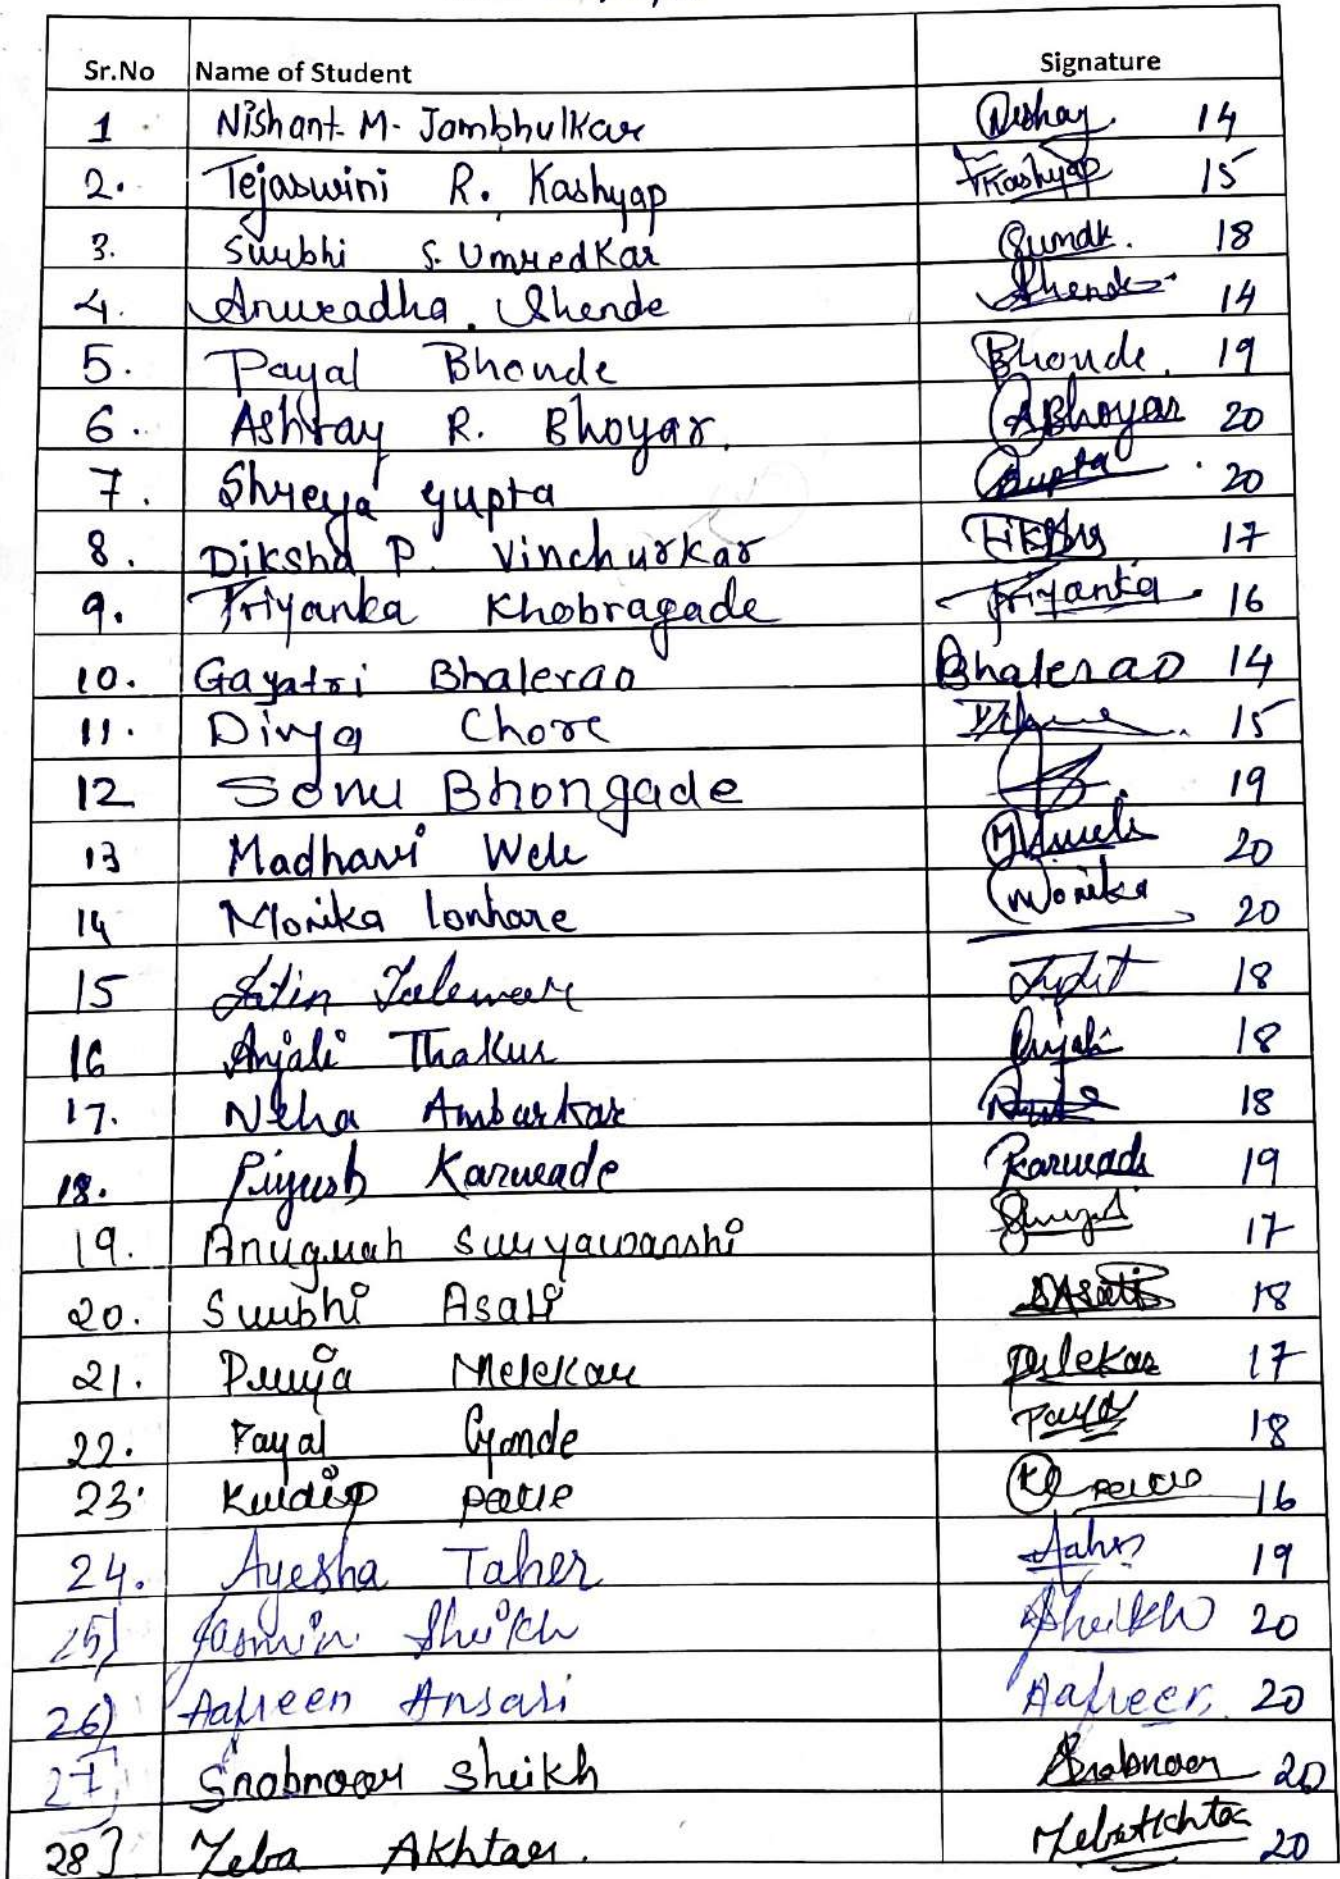 Sr.No Name of Student Signature
1 Nishant M. Jambhulkar 14
2. Tejaswini R. Kashyap TKashyap 15
3. Surbhi S. Umredkar 18
4. Anuradha Shende Shende 14
5. Payal Bhonde Bhonde 19
6. Ashray R. Bhoyar. ABhoyar 20
7. Shreya gupta Gupta 20
8. Diksha P. Vinchurkar 17
9. Priyanka Khobragade Priyanka 16
10. Gayatri Bhalerao Bhalerao 14
11. Divya Chore 15
12 Sonu Bhongade 19
13 Madhavi Wele 20
14 Monika lonhare Monika 20
15 18
16 Anjali Thakur Anjali 18
17. Neha Ambarkar 18
18. Piyush Karwade Karwade 19
19. Anugrah Suryawanshi 17
20. Surbhi Asati Asati 18
21. Melekar 17
22. Payal Gonde Payal 18
23. 16
24. Ayesha Taher Taher 19
25) Jasmin Sheikh Sheikh 20
26) Aafreen Ansari Aafreen 20
27) Snobnoor Sheikh Snobnoor 20
28) Zeba Akhtar. ZebaAkhtar 20